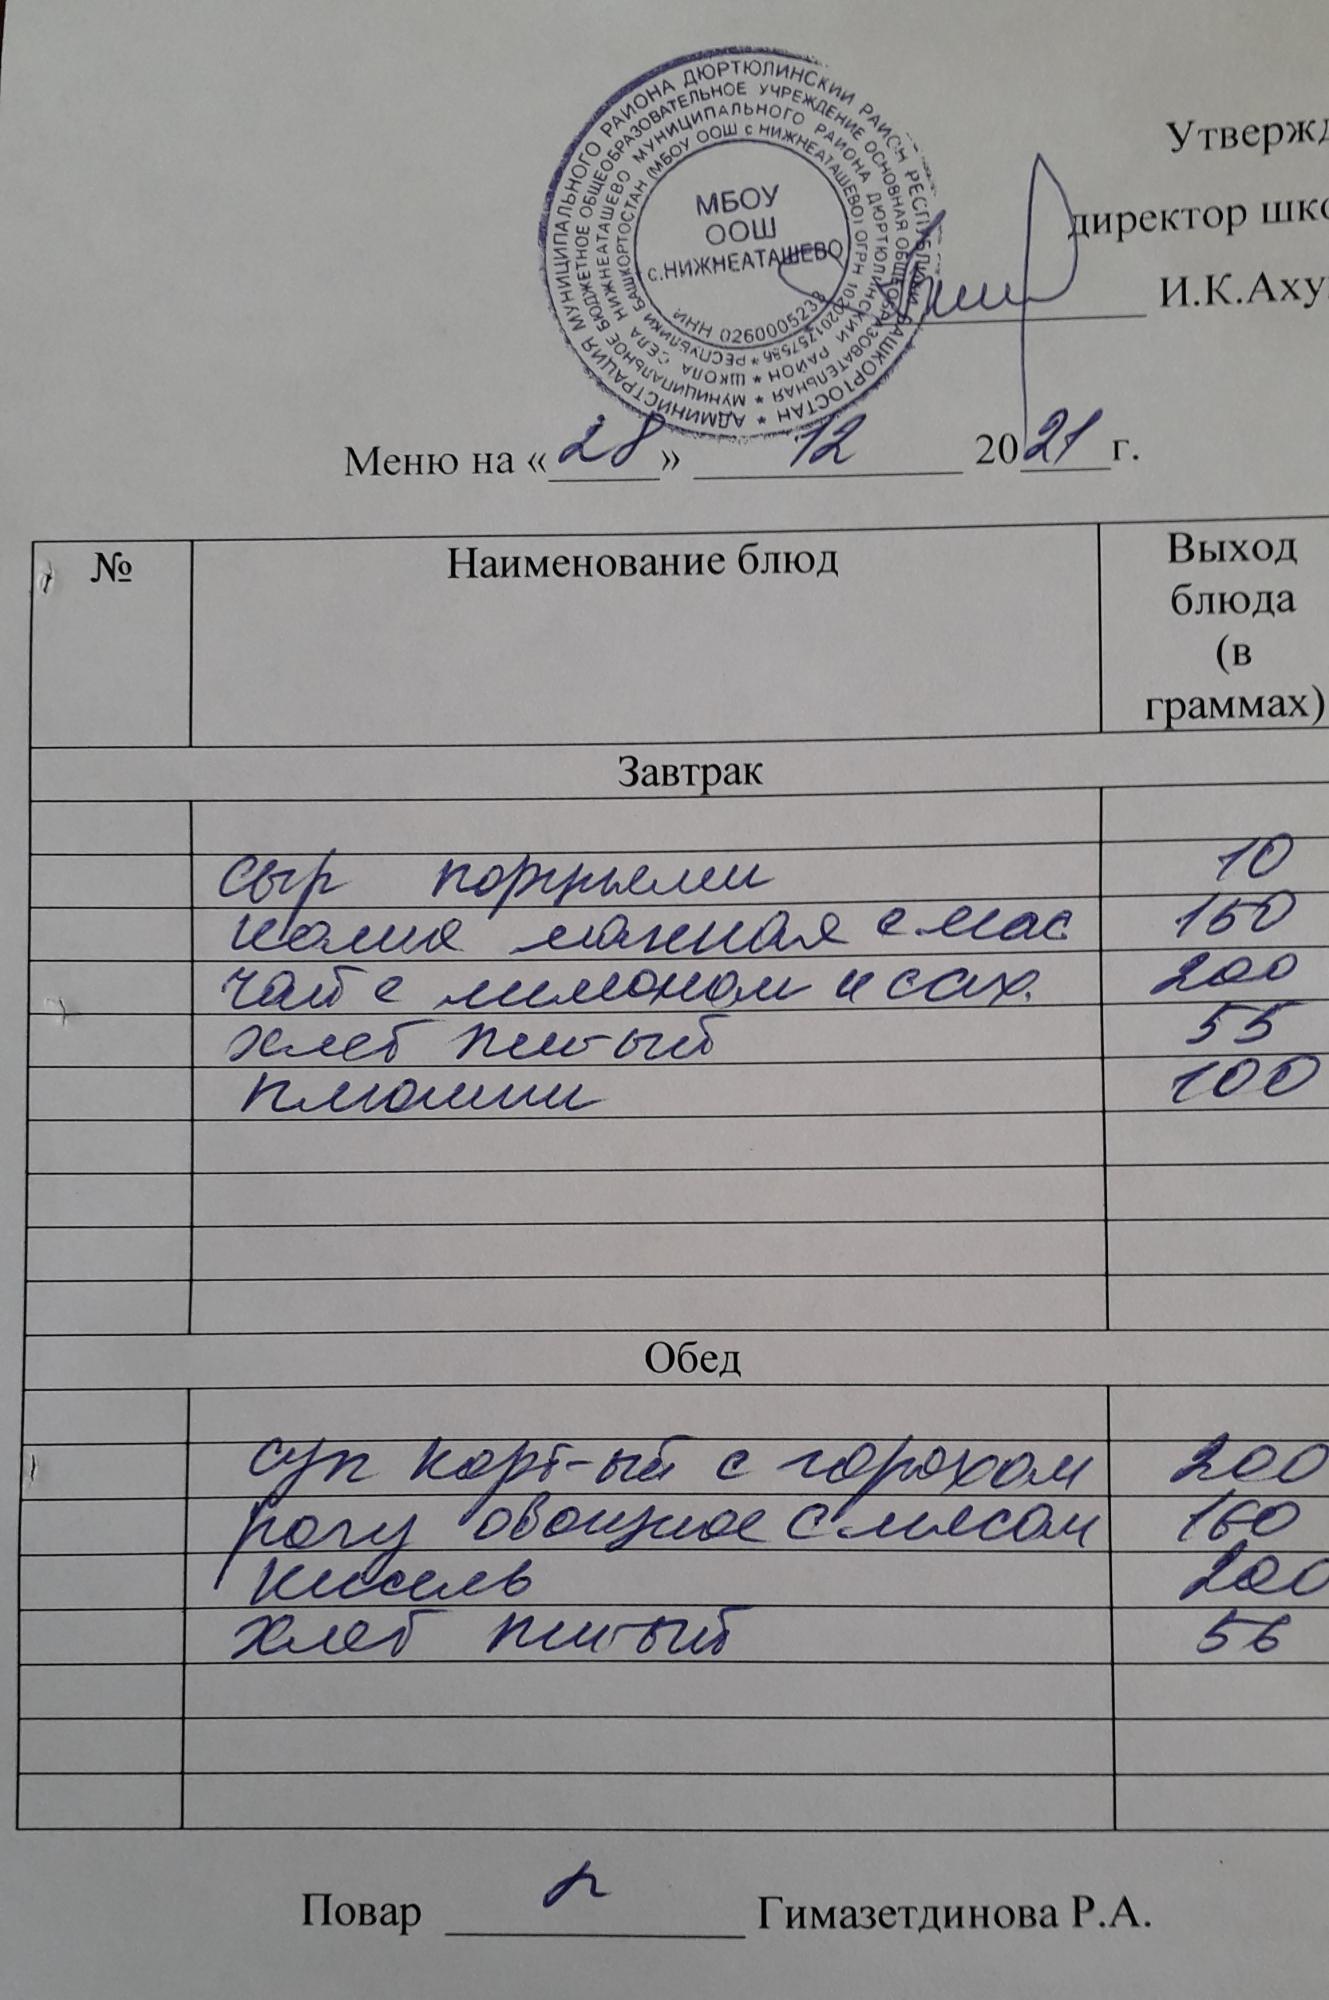 АДМИНИСТРАЦИЯ МУНИЦИПАЛЬНОГО РАЙОНА ДЮРТЮЛИНСКИЙ РАЙОН РЕСПУБЛИКИ БАШКОРТОСТАН *
МУНИЦИПАЛЬНОЕ БЮДЖЕТНОЕ ОБЩЕОБРАЗОВАТЕЛЬНОЕ УЧРЕЖДЕНИЕ ОСНОВНАЯ ОБЩЕОБРАЗОВАТЕЛЬНАЯ *
ШКОЛА СЕЛА НИЖНЕАТАШЕВО МУНИЦИПАЛЬНОГО РАЙОНА ДЮРТЮЛИНСКИЙ РАЙОН *
РЕСПУБЛИКИ БАШКОРТОСТАН (МБОУ ООШ с НИЖНЕАТАШЕВО) ОГРН *
ИНН 0260005233
МБОУ
ООШ
с.НИЖНЕАТАШЕВО
Утвержд
директор шко
И.К.Аху
Меню на «28» 12 2021 г.
№ Наименование блюд Выход
блюда
(в
граммах)
Завтрак
сыр порциями 10
каша манная с мас 150
чай с лимоном и сах. 200
хлеб пш-ый 55
плюшки 100
Обед
суп карт-ый с горохом 200
рагу овощное с мясом 160
кисель 200
хлеб пш-ый 56
Повар Гимазетдинова Р.А.